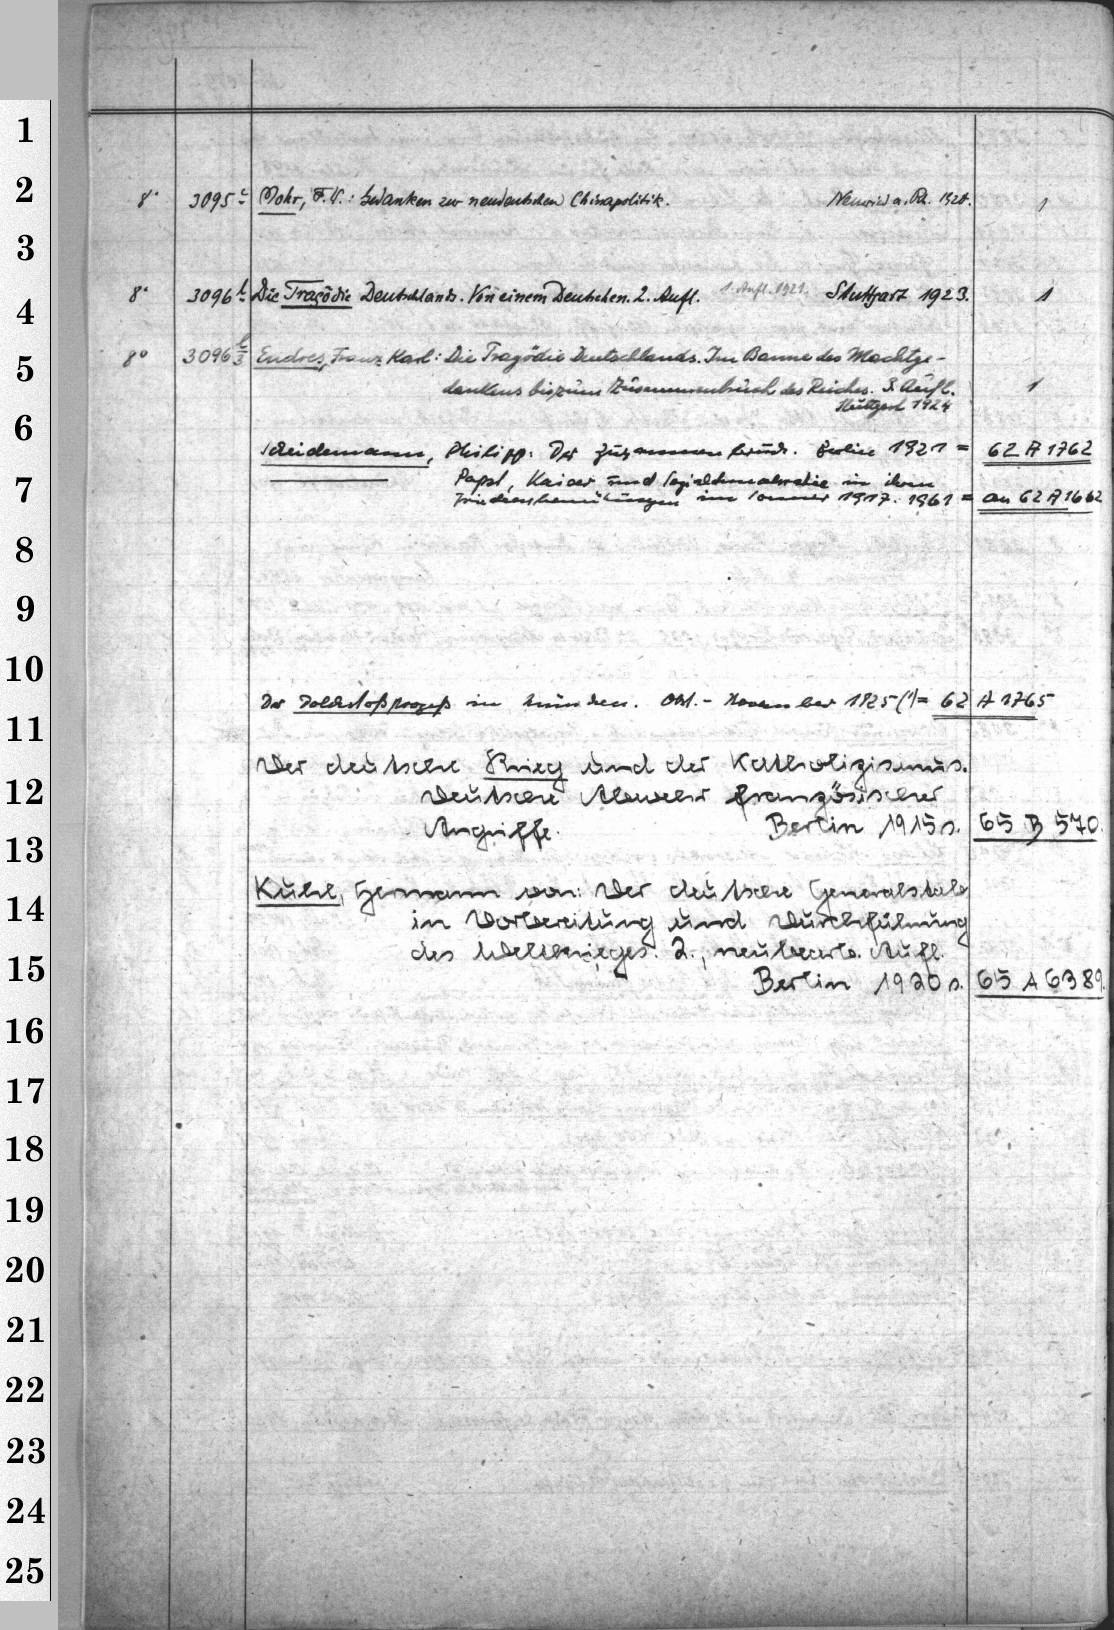 1
2
8° 3095 c Mohr, F.W.: Gedanken zur neudeutschen Chinapolitik. Neuwied a. Rh. 1920. 1
3
8° 3096 b Die Tragödie Deutschlands. Von einem Deutschen. 2. Aufl. 1. Aufl. 1921. Stuttgart 1923. 1
4
8° 3096 b/3 Endres, Franz Karl: Die Tragödie Deutschlands. Im Banne des Machtge-
5
dankens bis zum Zusammenbruch des Reiches. 3. Aufl. 1
Stuttgart 1924
6
Scheidemann, Philipp: Der Zusammenbruch. Berlin 1921 = 62 A 1762
7
Papst, Kaiser und Sozialdemokratie in ihren
Friedensbemühungen im Sommer 1917. 1961 = an 62 A 1662
8
9
10
Der Dolchstoßprozeß in München. Okt. - November 1925 (!) = 62 A 1765
11
Der deutsche Krieg und der Katholizismus.
12
Deutsche Abwehr französischer
Angriffe. Berlin 1915 s. 65 B 570.
13
Kuhl, Hermann von: Der deutsche Generalstab
14
in Vorbereitung und Durchführung
des Weltkrieges. 2., neubearb. Aufl.
15
Berlin 1920 s. 65 A 6389.
16
17
18
19
20
21
22
23
24
25